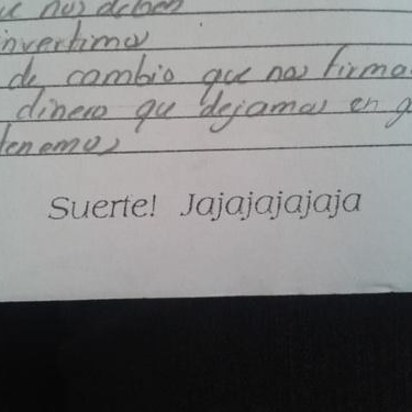 nos deben
invertimos
de cambio que nos firma
dinero que dejamos en g
tenemos
Suerte! Jajajajajaja